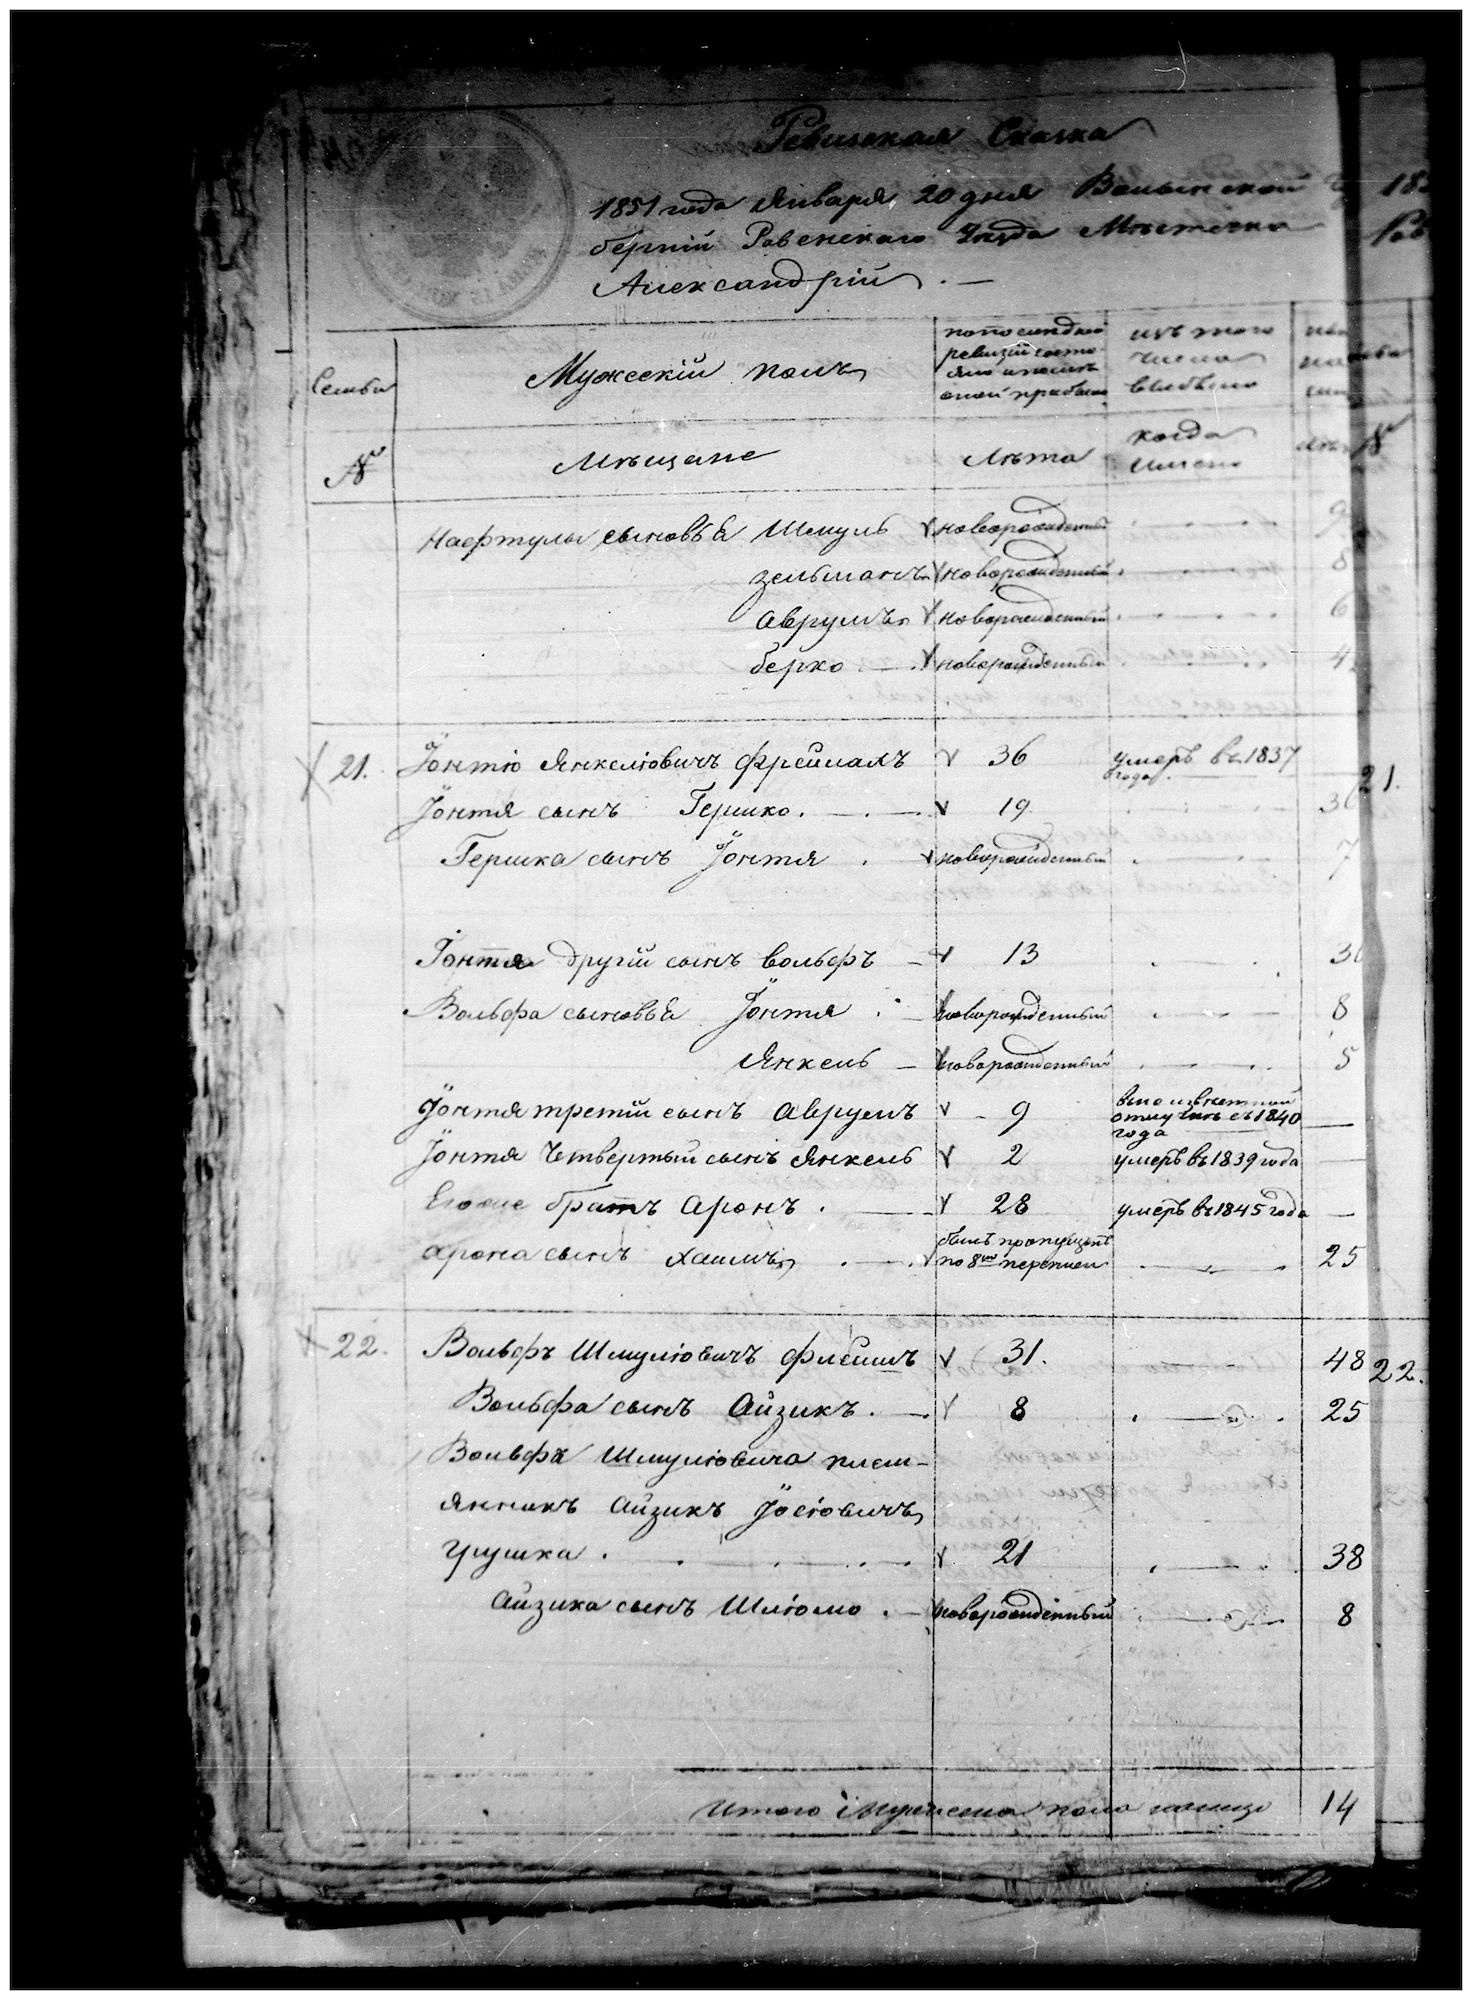 Ревизская Сказка
1851 года Января 20 дня Волынской Гу
берній Ровенскаго Уезда Мѣстечка
Александрій . —
Семьи
Мужескій полъ
по последней
ревизіи состо
яло и послѣ
оной прибыло
изъ того
числа
выбыло
№
Мѣщане
Лѣта
когда
имено
№
Нафтулы сыновья Шмуль новорожденный 9
Зельманъ новорожденный 8
Аврумъ новорожденный 6
Берко новорожденный 4
21. Іонтю Янкелювичъ Фрейманъ 36 умеръ въ 1837
года. 21.
Іонтя сынъ Гершко. 19
Гершка сынъ Іонтя новорожденный 7
Іонтя другій сынъ Вольфъ 13
Вольфа сыновья Іонтя новорожденный 8
Янкель новорожденный 5
Іонтя третій сынъ Аврумъ 9 отлучкѣ съ 1840
года
Іонтя Четвертый сынъ Янкель 2 умеръ въ 1839 года
Егоже братъ Аронъ 28 умеръ въ 1845 года
Арона сынъ Хаимъ былъ пропущенъ
по 8й переписи 25
22. Вольфъ Шмулювичъ 31. 48 22.
Вольфа сынъ Айзикъ. 8 25
Вольфа Шмулювича плем-
янникъ Айзикъ Іосіовичъ
Грушка 21 38
Айзика сынъ Шлюмо новорожденный 8
Итого мужеска пола 14